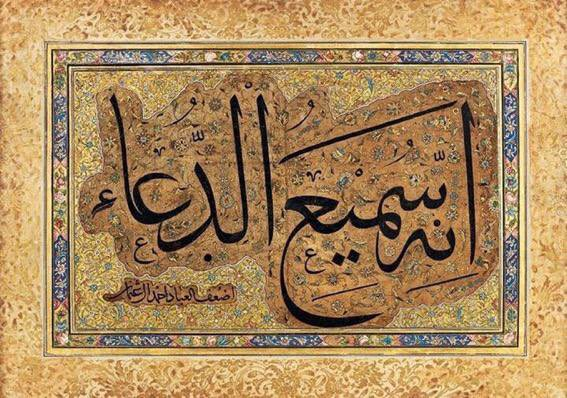 انّه سميع الدّعاء
اضعف العباد احمد